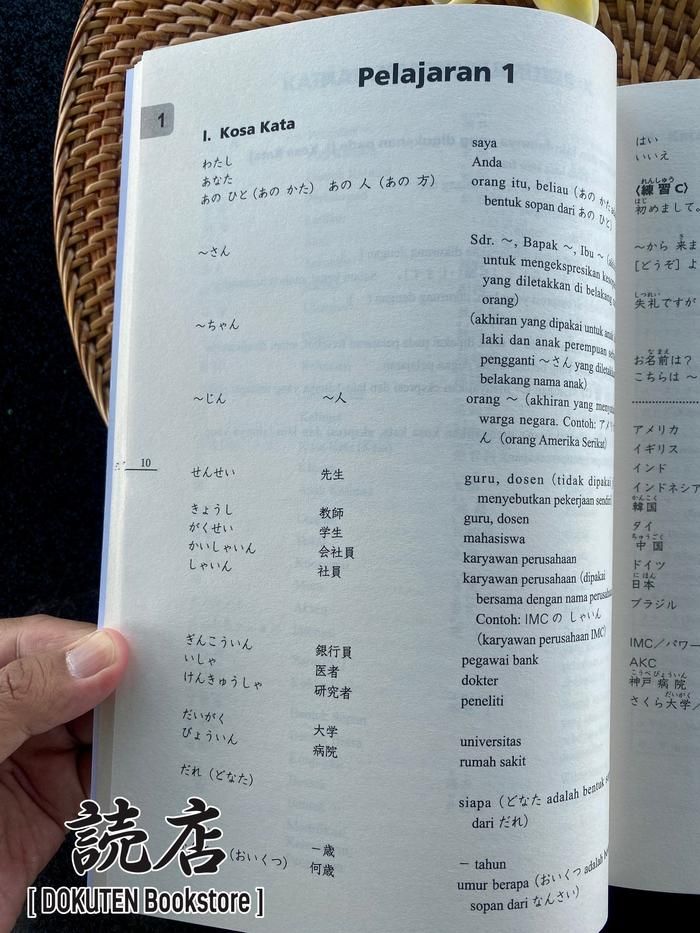 Pelajaran 1
1
I. Kosa Kata
わたし saya
あなた Anda
あの ひと(あの かた) あの 人(あの 方) orang itu, beliau (あの かた
bentuk sopan dari あの ひと)
～さん Sdr. ～, Bapak ～, Ibu ～
untuk mengekspresikan
yang diletakkan di belakang
orang)
～ちゃん (akhiran yang dipakai untuk anak
laki dan anak perempuan
pengganti ～さん yang
belakang nama anak)
～じん ～人 orang ～ (akhiran yang
warga negara. Contoh:
ん (orang Amerika Serikat)
10
せんせい 先生 guru, dosen (tidak dipakai
menyebutkan pekerjaan sendiri)
きょうし 教師 guru, dosen
がくせい 学生 mahasiswa
かいしゃいん 会社員 karyawan perusahaan
しゃいん 社員 karyawan perusahaan (dipakai
bersama dengan nama
Contoh: IMC の しゃいん
(karyawan perusahaan IMC)
ぎんこういん 銀行員 pegawai bank
いしゃ 医者 dokter
けんきゅうしゃ 研究者 peneliti
だいがく 大学 universitas
びょういん 病院 rumah sakit
だれ(どなた) siapa (どなた adalah bentuk
dari だれ)
(おいくつ) －歳 － tahun
何歳 umur berapa (おいくつ adalah
sopan dari なんさい)
はい
いいえ
れんしゅう
〈練習 C〉
はじ
初めまして。
き
～から 来ま
[どうぞ] よ
しつれい
失礼ですが
なまえ
お名前は？
こちらは ～
アメリカ
イギリス
インド
インドネシア
かんこく
韓国
タイ
ちゅうごく
中国
ドイツ
にほん
日本
ブラジル
IMC／パワー
AKC
こうべびょういん
神戸病院
だいがく
さくら大学／
読店
[ DOKUTEN Bookstore ]